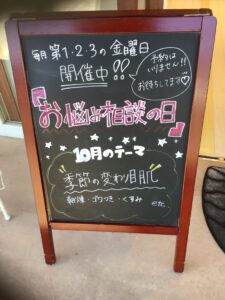 毎月 第1・2・3の金曜日
開催中!!
予約は
いりません!!
お待ちしてます♡
『お悩み相談の日』
10月のテーマ
季節の変わり目肌
乾燥・ゴワつき・くすみ etc.